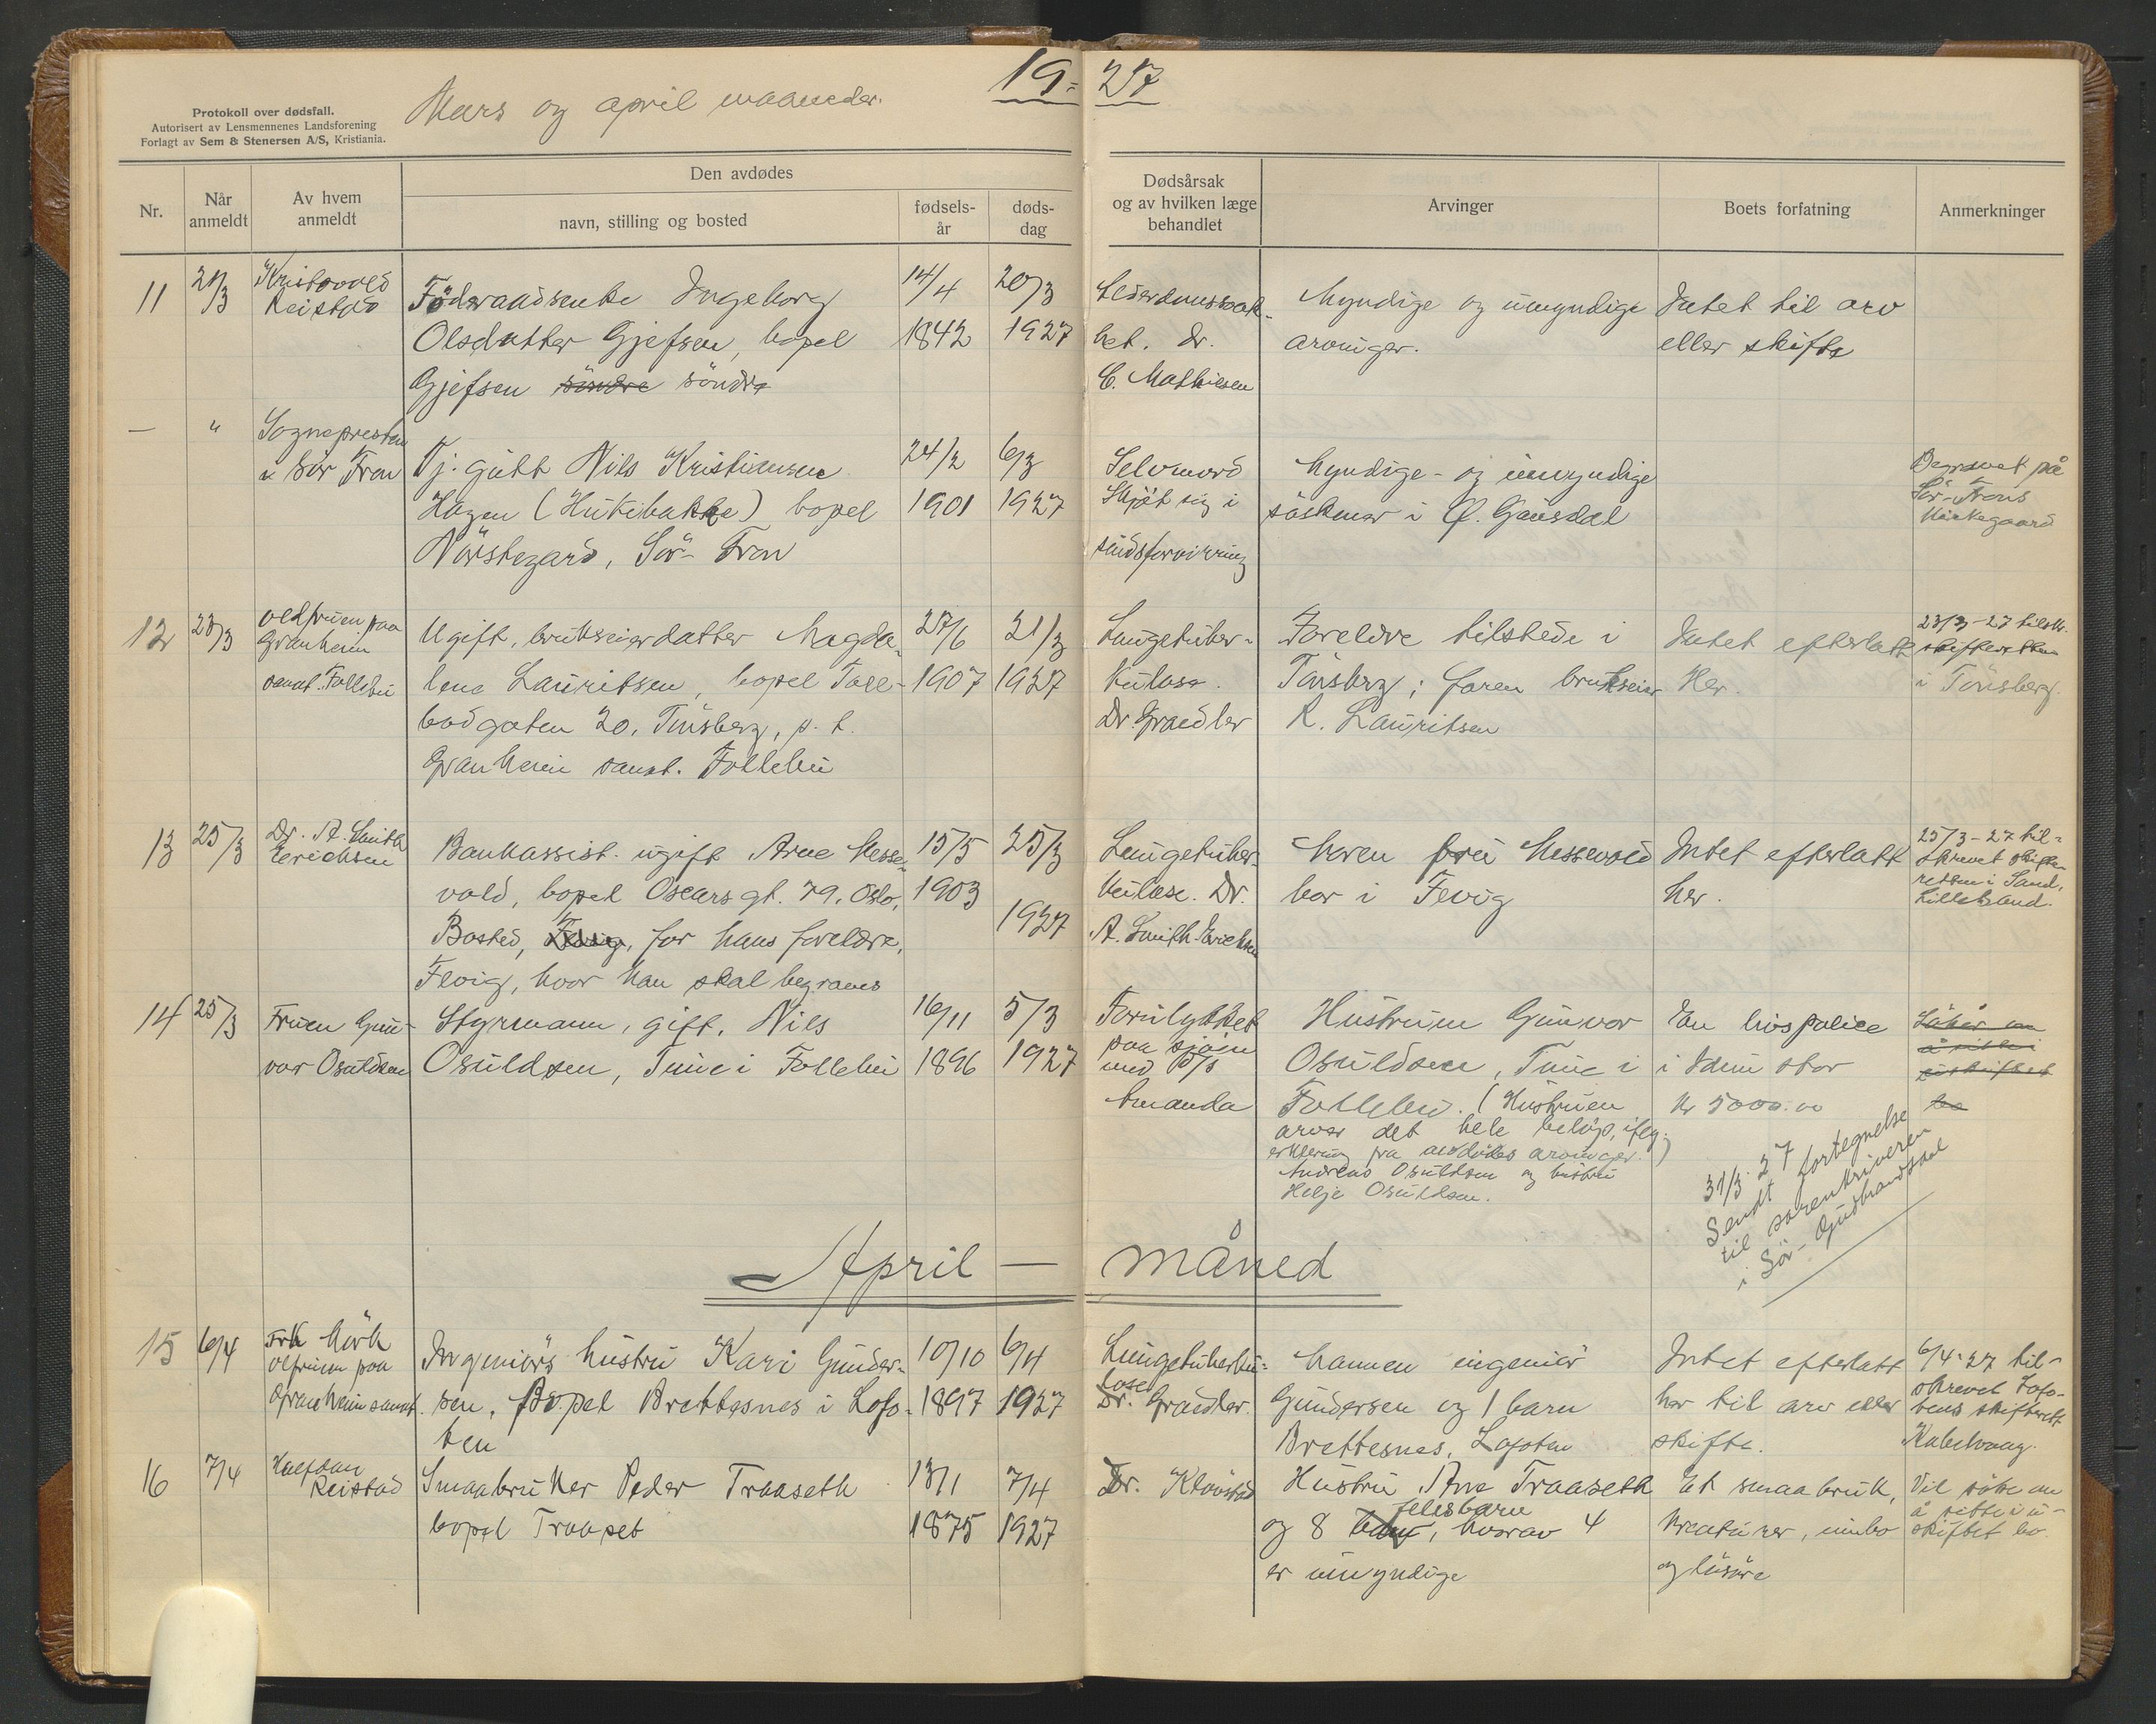 Protokoll over dødsfall.
Autorisert av Lensmennenes Landsforening
Forlagt av Sem & Stenersen A/S, Kristiania.
Mars og april maaneder.
19- 27
Nr.
Når
anmeldt
Av hvem
anmeldt
Den avdødes
navn, stilling og bosted
fødsels-
år
døds-
dag
Dødsårsak
og av hvilken læge
behandlet
Arvinger
Boets forfatning
Anmerkninger
11
21/3
Reistad
Föderaadsenke Ingeborg
Olsdatter Gjefsen, bopel
Gjefsen söndre söndre
14/4
1842
20/3
1927
Alderdomssvak-
het. Dr.
C. Mathiesen
Myndige og umyndige
arvinger.
Intet til arv
eller skifte
—
"
Sognepresten
i Sör Fron
Tj. gutt Nils Kristiansen
Hagen (Hutibakke) bopel
Nörstegard, Sör-Fron
24/2
1901
6/3
1927
Selvmord
Skjöt sig i
sindsforvirring
Myndige- og umyndige
söskener i Ö. Gausdal
Begravet på
Sör-Frons
kirkegaard
12
23/3
oldfruen paa
Granheim
sanat. Follebu
Ugift, brukseierdatter Magda-
lene Lauritsen, bopel Toll-
bodgaten 20, Tönsberg, p.t.
Granheim sanat. Follebu
27/6
1907
21/3
1927
Lungetuber-
kulose.
Dr. Graedler
Foreldre tilstede i
Tönsberg; faren brukseier
R. Lauritsen
Intet efterlatt
her.
23/3-27 tilskr.
skifteretten
i Tönsberg.
13
25/3
Dr. A. Smith
Erichsen
Bankassist. ugift Arne Hesse-
vold, bopel Oscars gt. 79, Oslo,
Bosted, Fevig, for hans foreldre,
Fevig, hvor han skal begraves
15/5
1903
25/3
1927
Lungetuber-
kulose. Dr.
A. Smith-Erichsen
Moren fru Hessevold
bor i Fevig
Intet efterlatt
her.
25/3-27 til-
skrevet skifte-
retten i Sand,
Lillesand.
14
25/3
Fruen Gun-
vor Osuldsen
Styrmann, gift, Nils
Osuldsen, Tune i Follebu
16/11
1896
5/3
1927
Forulykket
paa sjöen
med D/S
Amanda
Hustruen Gunvor
Osuldsen, Tune i
Follebu. (Hustruen
arver det hele belöp, iflg.
erklering fra avdödes arvinger.)
Andreas Osuldsen og hustru
Helje Osuldsen.
En livspolice
i Idun stor
kr 5000.00
Söker om
å sitte i
uskiftet
bo
31/3 27
Sendt fortegnelse
til sorenskriveren
i Sör-Gudbrandsdal
April — måned
15
6/4
Frk Mörk
olfruen paa
Granheim sanat.
Ingeniörs hustru Kari Gunder-
sen, Bopel Brettesnes i Lofo-
ten
10/10
1897
6/4
1927
Lungetuberku-
lose
Dr. Graedler.
Mannen ingeniör
Gundersen og 1 barn
Brettesnes, Lofoten
Intet efterlatt
her til arv eller
skifte.
6/4-27 til-
skrevet Lofo-
tens skifterett
Kabelvaag.
16
7/4
Halfdan
Reistad
Smaabruker Peder Traaseth
bopel Traaset
13/1
1875
7/4
1927
Dr. Klövstad
Hustru Ane Traaseth
fellesbarn
og 8 barn, hvorav 4
er umyndige
Et smaabruk,
kreaturer, innbo
og lösöre
Vil söke om
å sitte i u-
skiftet bo